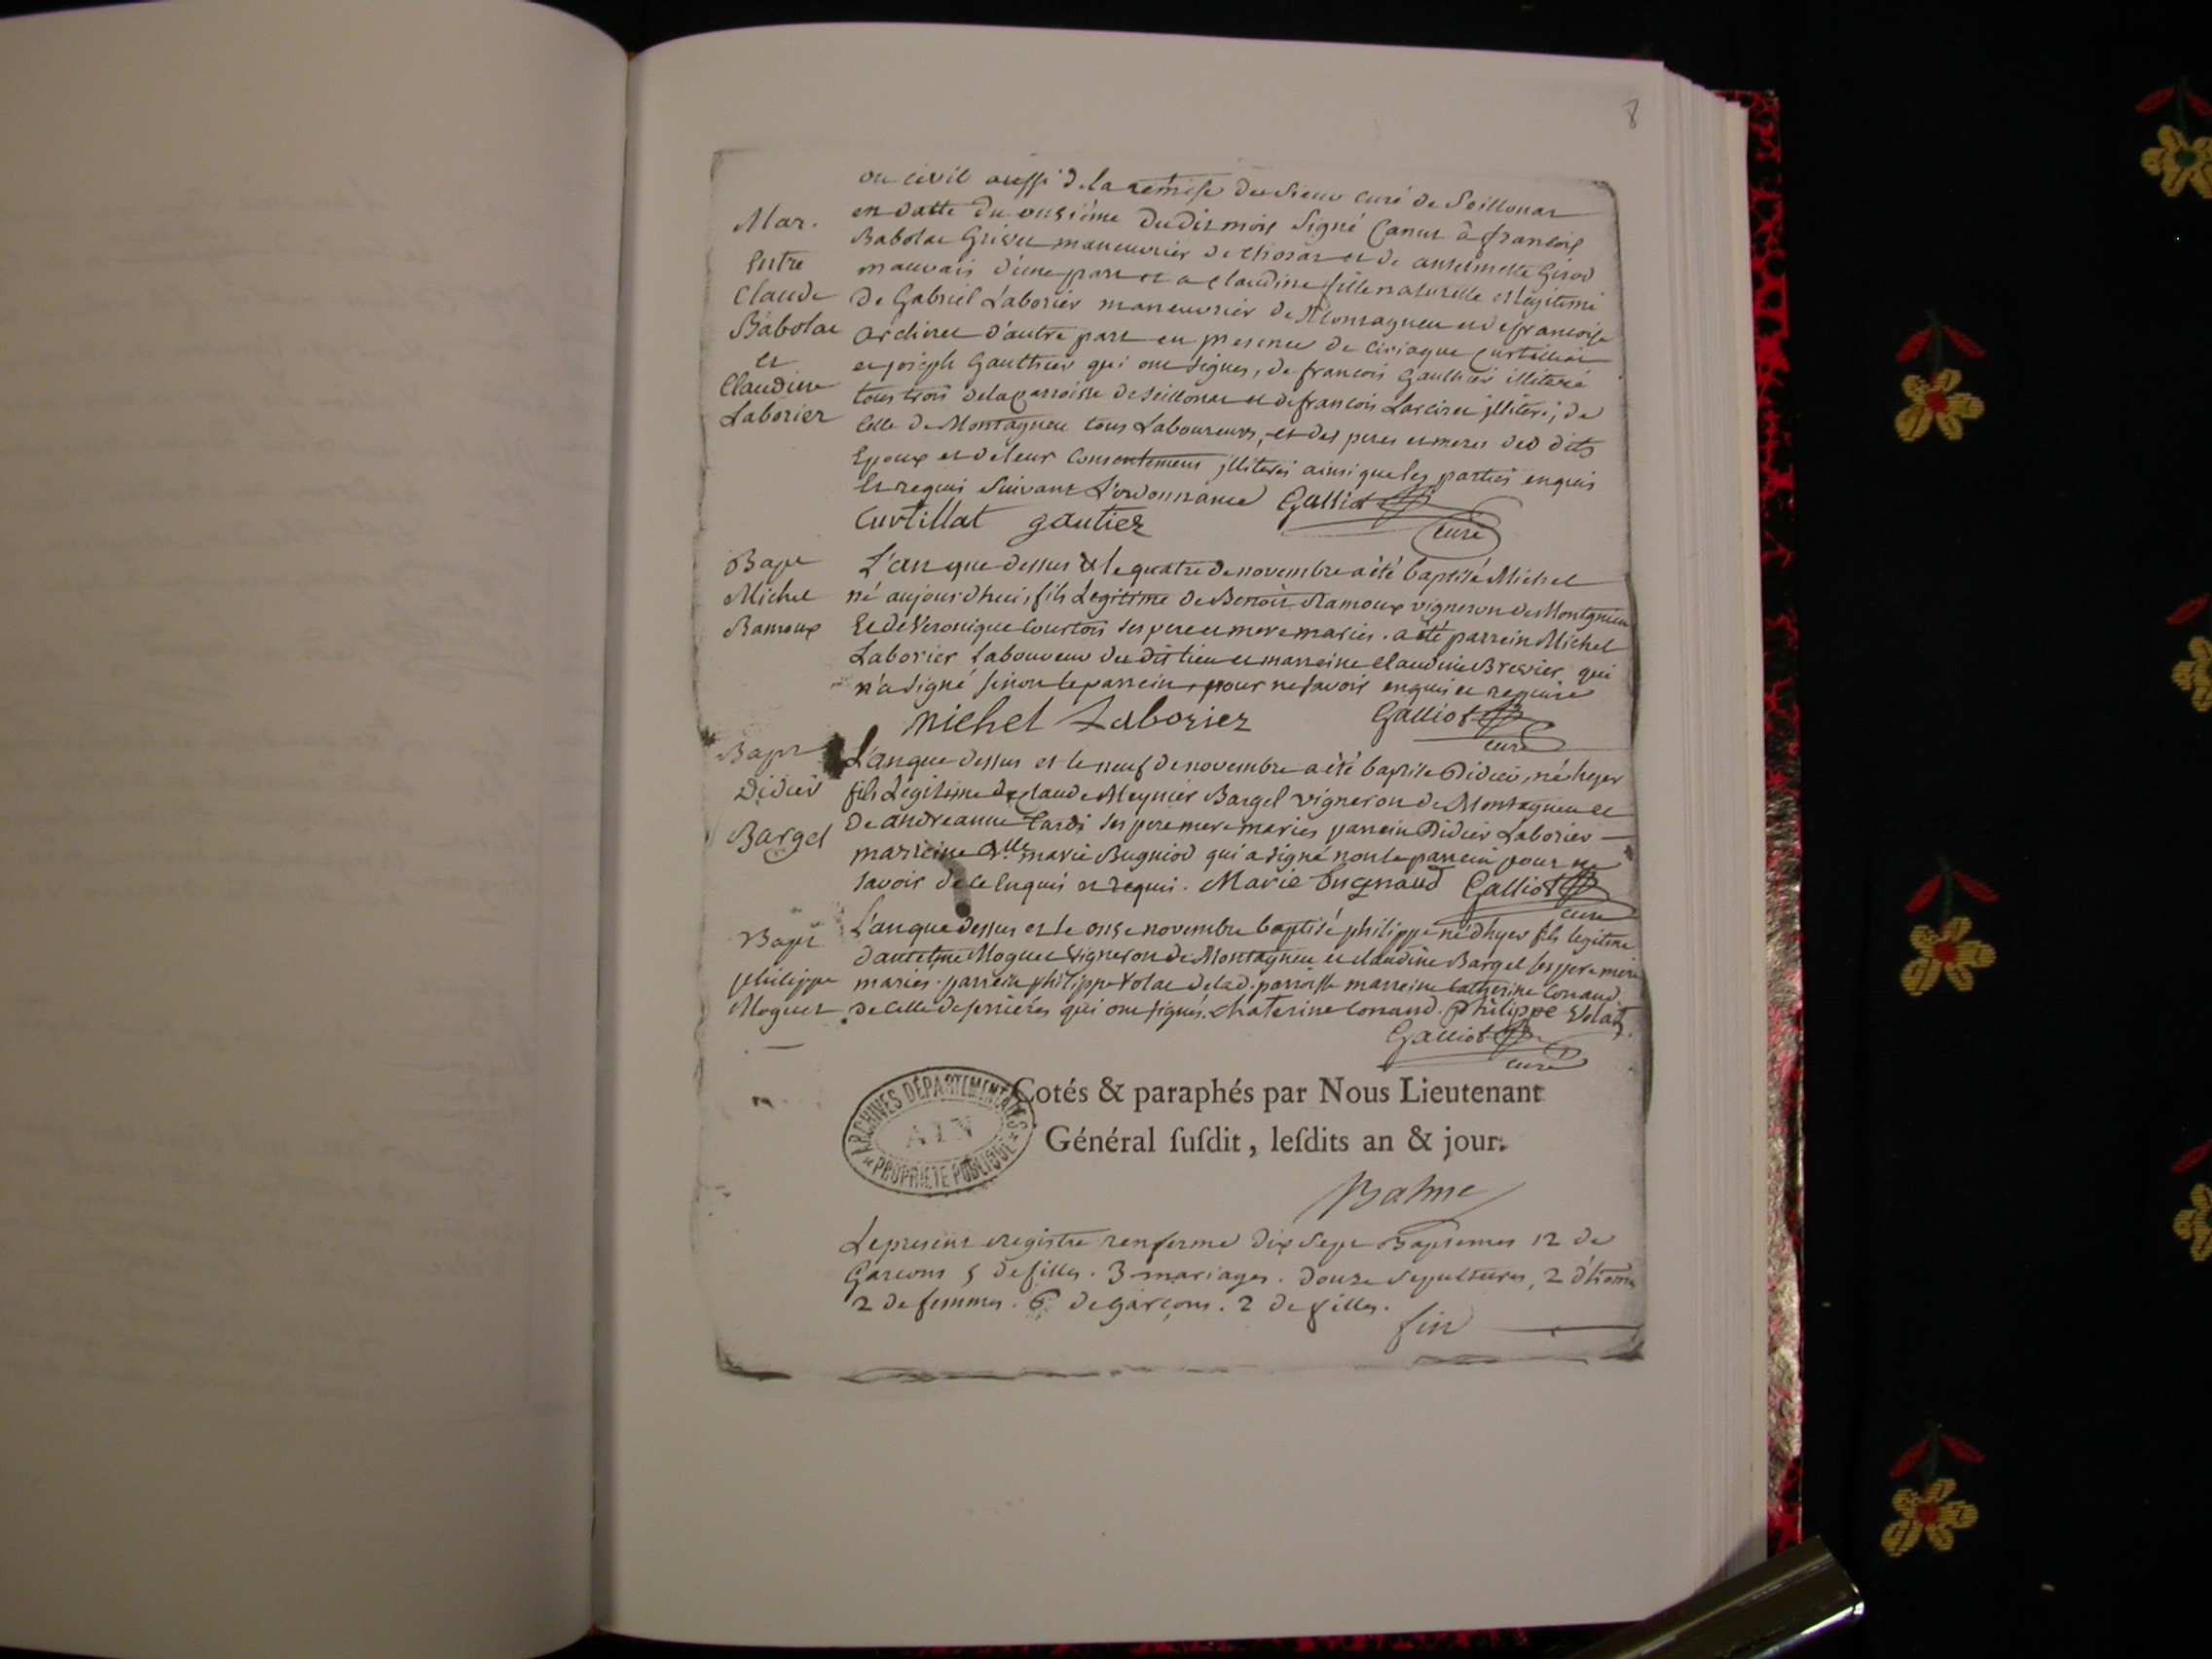 8
ou civil aussi de la remise du sieur curé de Seillonas
Mar. en datte du onsiéme dudit mois signé Canus à françois
Babolac Grivet maneuvrier de et de antelmette Girod
Entre mauvais d'une part et a claudine fille naturelle et légitime
Claude de Gabriel Laborier maneuvrier de Montagneu et de françoise
Babolac d'autre part en presence de Ciriaque Curtilliat
et et joseph Gauthier qui ont signes, de françois Gauthier illiteré
Claudine tous trois de la parroisse de Seillonas et de francois illiteré, de
Laborier celle de Montagneu tous Laboureurs, et des peres et meres des dits
Epoux et de leur consentement illiterés ainsi que les parties enquis
Et requis suivant L'ordonnance Galliot
curé
Curtillat gautier
Bapt L'an que dessus & le quatre de novembre a été baptisé Michel
Michel né aujourdhui, fils Légitime de Benoit Ramoux vigneron de Montagnieu
Ramoux Et de Veronique Courtois ses pere et mere maries. a été parrein Michel
Laborier laboureur du dit lieu et marreine claudine Brevier qui
n'a signé sinon le parrein, pour ne savoir enquis et requise
Michel Laborier Galliot
curé
Bapt L'an que dessus et le neuf de novembre a été baptisé Didier, né hyer
Didier fils Légitime de claude Meynier Bargel vigneron de Montagneu et
Bargel de andreanne Tardi ses pere mere maries parrein Didier Laborier
marreine dlle marie Bugniod qui a signé non le parrein pour ne
savoir de ce enquis et requis. Marie bugnaud Galliot
curé
Bapt L'an que dessus et le onse novembre baptisé philippe né d'hyer fils legitime
d'antelme Moguet vigneron de Montagneu et claudine Bargel ses pere mere
philippe maries. parrein philippe Volac de lad. parroisse marreine Catherine Conand
Moguet de celle de serriéres qui ont signés. Chaterine Conand. philippe Volat.
Galliot
curé
ARCHIVES DÉPARTEMENTALES
AIN
PROPRIÉTÉ PUBLIQUE
Cotés & paraphés par Nous Lieutenant
Général susdit, lesdits an & jour.
Balme
Le present registre renferme dix sept Baptemes 12 de
Garcons 5 de filles. 3 mariages. douze sepultures, 2 d'home
2 de femmes. 6 de garçons. 2 de filles.
fin